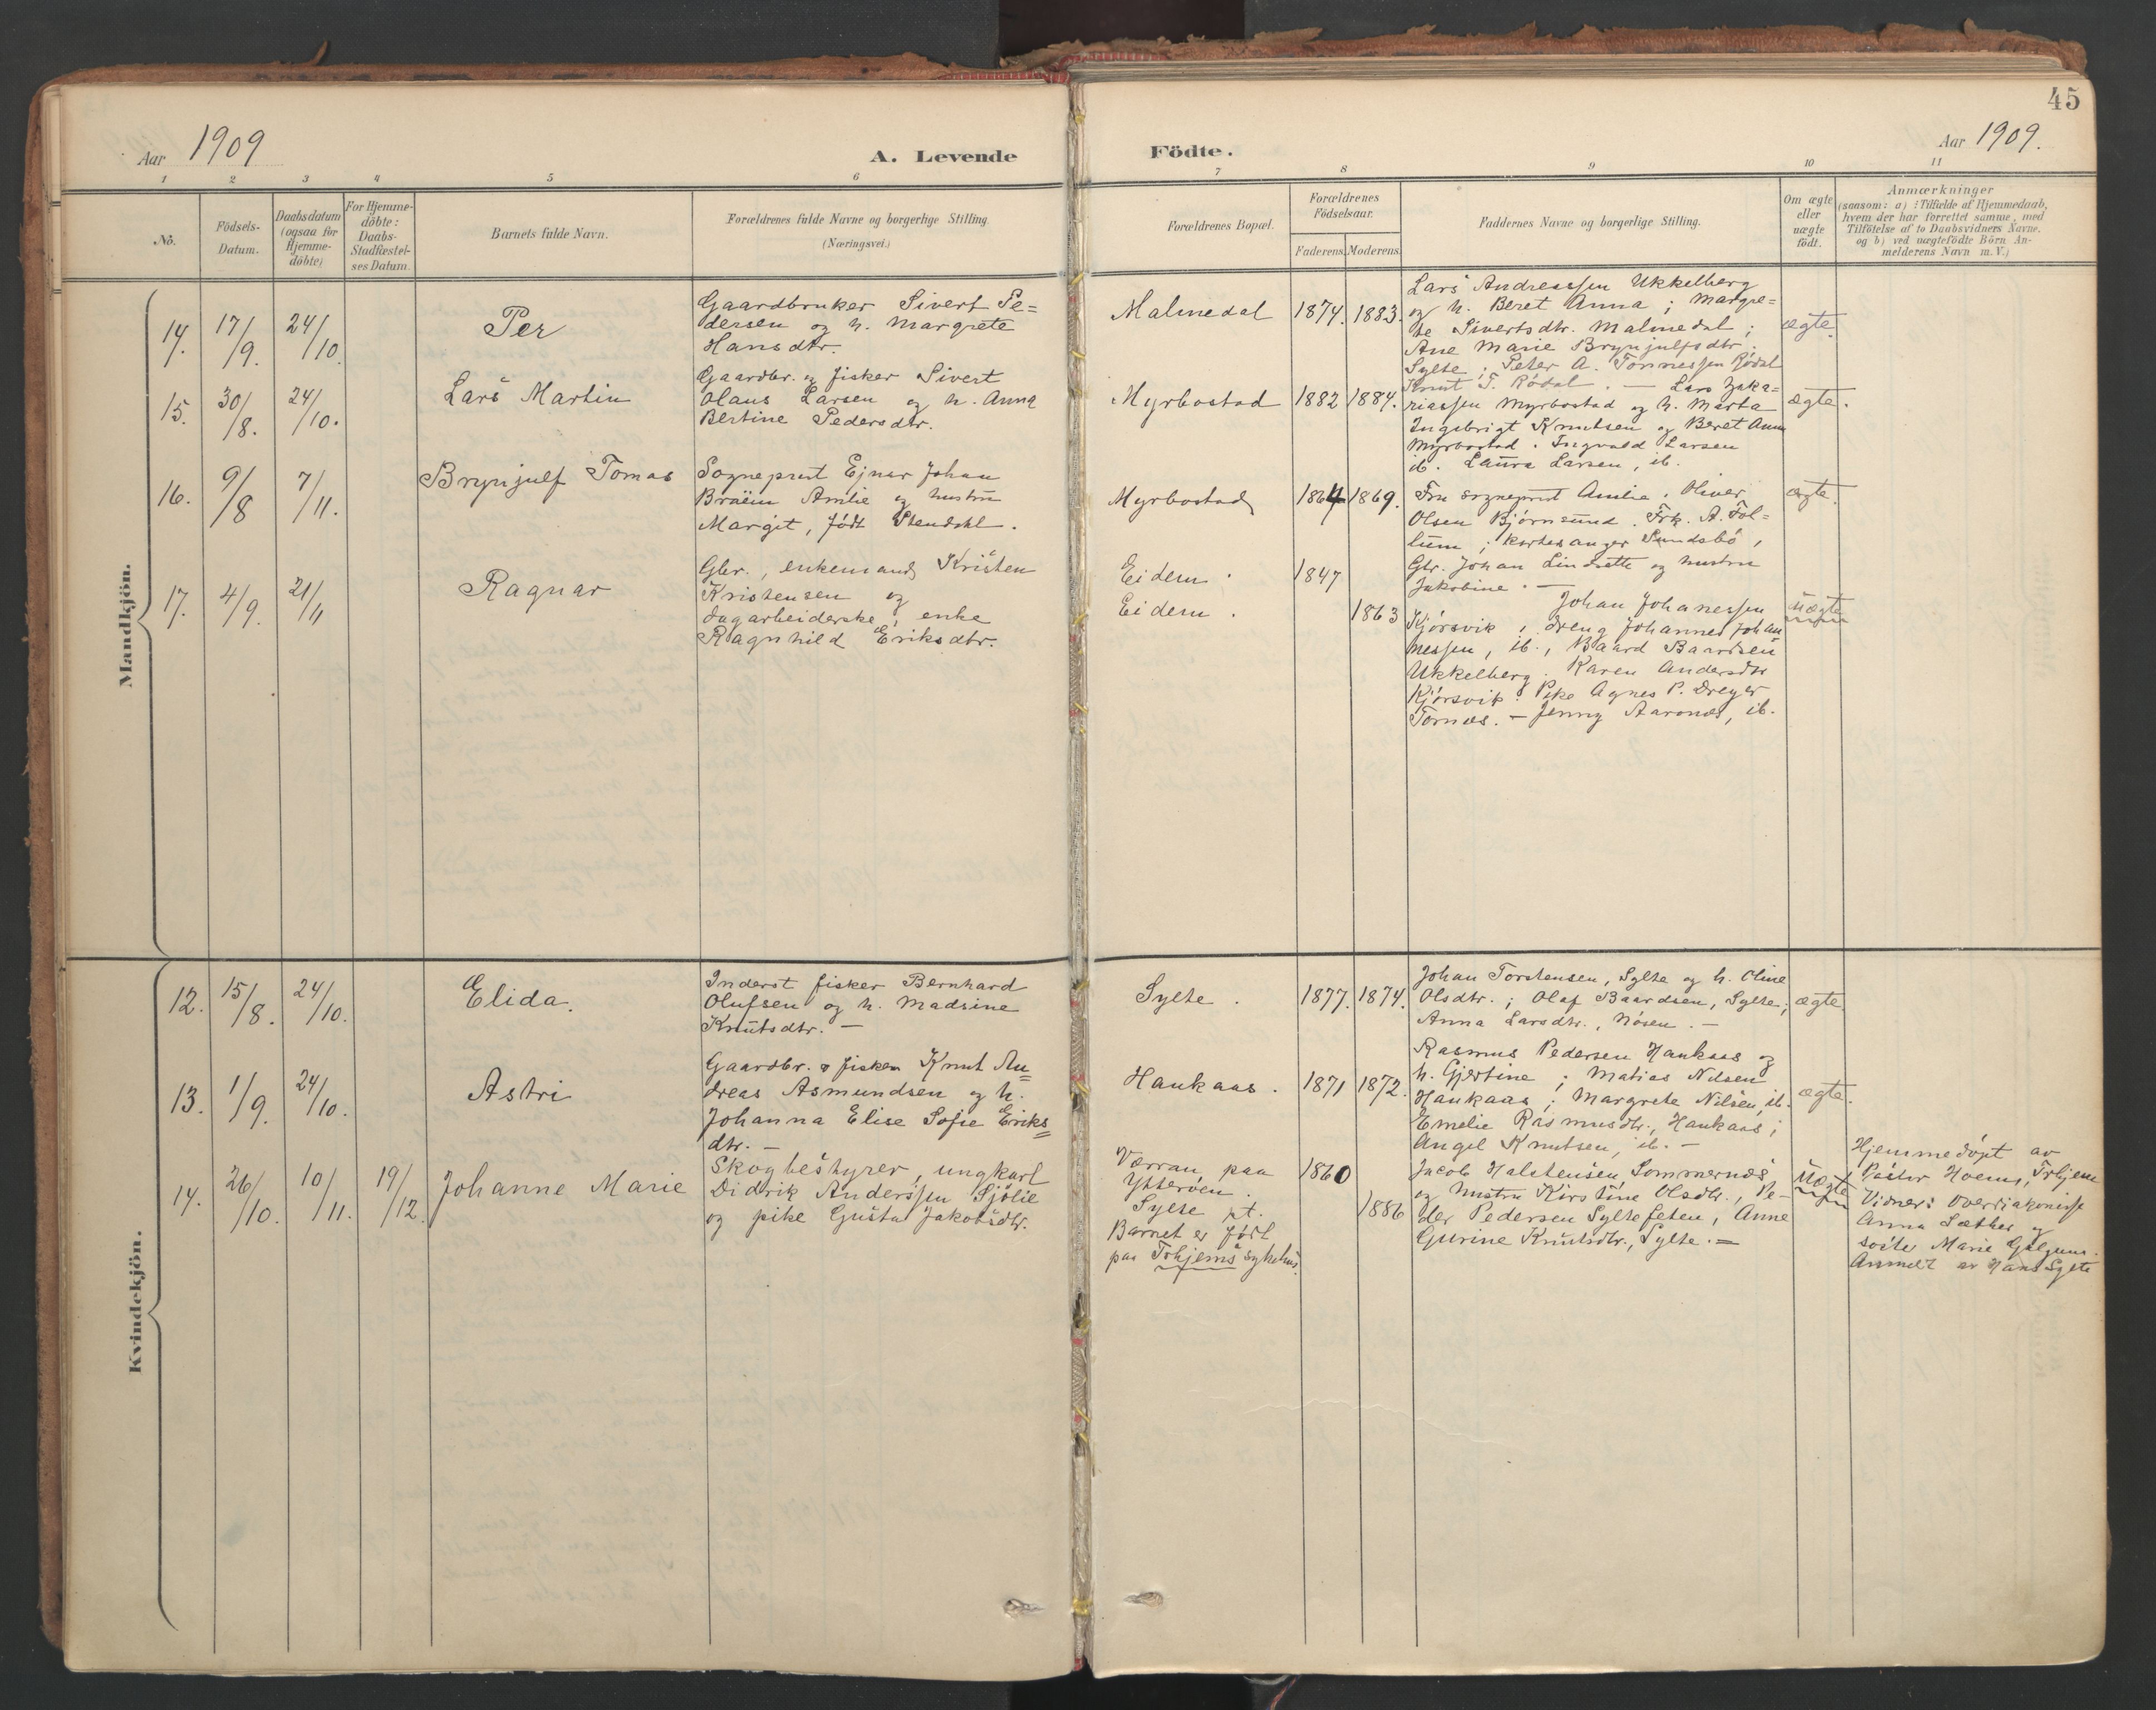 45
Aar 1909
A. Levende
Födte.
Aar 1909.
1 2 3 4 5 6 7 8 9 10 11
No.
Födsels-
Datum.
Daabsdatum
(ogsaa for
Hjemme-
döbte)
For Hjemme-
döbte:
Daabs-
Stadfæstel-
ses Datum.
Barnets fulde Navn.
Forældrenes fulde Navne og borgerlige Stilling.
(Næringsvei.)
Forældrenes Bopæl.
Forældrenes
Födselsaar.
Faderens. Moderens.
Faddernes Navne og borgerlige Stilling.
Om ægte
eller
uægte
födt.
Anmærkninger
(saasom: a) i Tilfælde af Hjemmedaab,
hvem der har forrettet samme, med
Tilföielse af to Daabsvidners Navne.
og b) ved uægtefödte Börn An-
melderens Navn m. V.)
Mandkjön.
14.
17/9.
24/10.
Per
Gaardbruker Sivert Pe=
dersen og h. Margrete
Hansdtr.
Malmedal
1874. 1883.
Lars Andreassen Ukkelberg
og h. Beret Anna; Margre=
te Sivertsdtr. Malmedal;
Ane Marie Brynjulfsdtr.
Sylte; Peter A. Tønnessen Rødal
Knut T. Rødal. —
ægte.
15.
30/8.
24/10.
Lars Martin
Gaardbr. og fisker Sivert
Olaus Larsen og h. Anna
Bertine Pedersdtr.
Myrbostad
1882 1884.
Lars Zaka=
riassen Myrbostad og h. Marta
Ingebrigt Knutsen og Beret Anna
Myrbostad. Ingvald Larsen
ib. Laura Larsen, ib.
ægte.
16.
9/8
7/11.
Brynjulf Tomas
Sogneprest Ejnar Johan
Bruün Amlie og hustru
Margit, født Stendahl.
Myrbostad
1864 1869.
Fru sogneprest Amlie. Oliver
Olsen Bjørnsund. Frk. A. Fol=
lum; kirkesanger Sundsbø,
Gbr. Johan Lindsette og hustru
Jakobine. —
ægte.
17.
4/9.
21/11
Ragnar
Gbr., enkemand Kristen
Kristensen og
dagarbeiderske, enke
Ragnhild Eriksdtr.
Eidem.
Eidem.
1847
1863
Johan Johanessen
Kjørsvik, dreng Johannes Johan
nessen, ib., Baard Baardsen
Ukkelberg. Karen Andersdtr
Kjørsvik. Pike Agnes P. Dreyer
Tornes. — Jenny Aarønes, ib.
uægte
Kvindekjön.
12.
15/8.
24/10.
Elida.
Inderst fisker Bernhard
Olufsen og h. Madsine
Knutsdtr. —
Sylte.
1877. 1874.
Johan Torstensen, Sylte og h. Oline
Olsdtr.; Olaf Baardsen, Sylte;
Anna Larsdtr., Nøsen. —
ægte.
13.
1/9.
24/10.
Astri
Gaardbr. & fisker Knut An=
dreas Asmundsen og h.
Johanna Elise Sofie Eriks=
dtr. —
Haukaas.
1871 1872.
Rasmus Pedersen Haukaas og
h. Gjertine; Matias Nilsen
Haukaas; Margrete Nilsen, ib.
Emelie Rasmusdtr., Haukaas;
Angel Knutsen, ib. —
ægte.
14.
26/10.
10/11.
19/12.
Johanne Marie
Skogbestyrer, ungkarl
Didrik Anderssen Sjölie
og pike Gusta Jakobsdtr.
Værran paa
Ytterøen.
Sylte pt.
Barnet er født
paa Trhjems sykehus.
1860
1886
Jacob Halstensen Sommernes
og hustru Kirstine Olsdtr., Pe-
der Pedersen Sylte feten, Anne
Gurine Knutsdtr., Sylte. —
uægte
Hjemmedøpt av
Pastor Hoems, Trhjem
Vidner: Overdiakonisse
Anna Sæther og
søster Marie
Anmelt av Hans Sylte